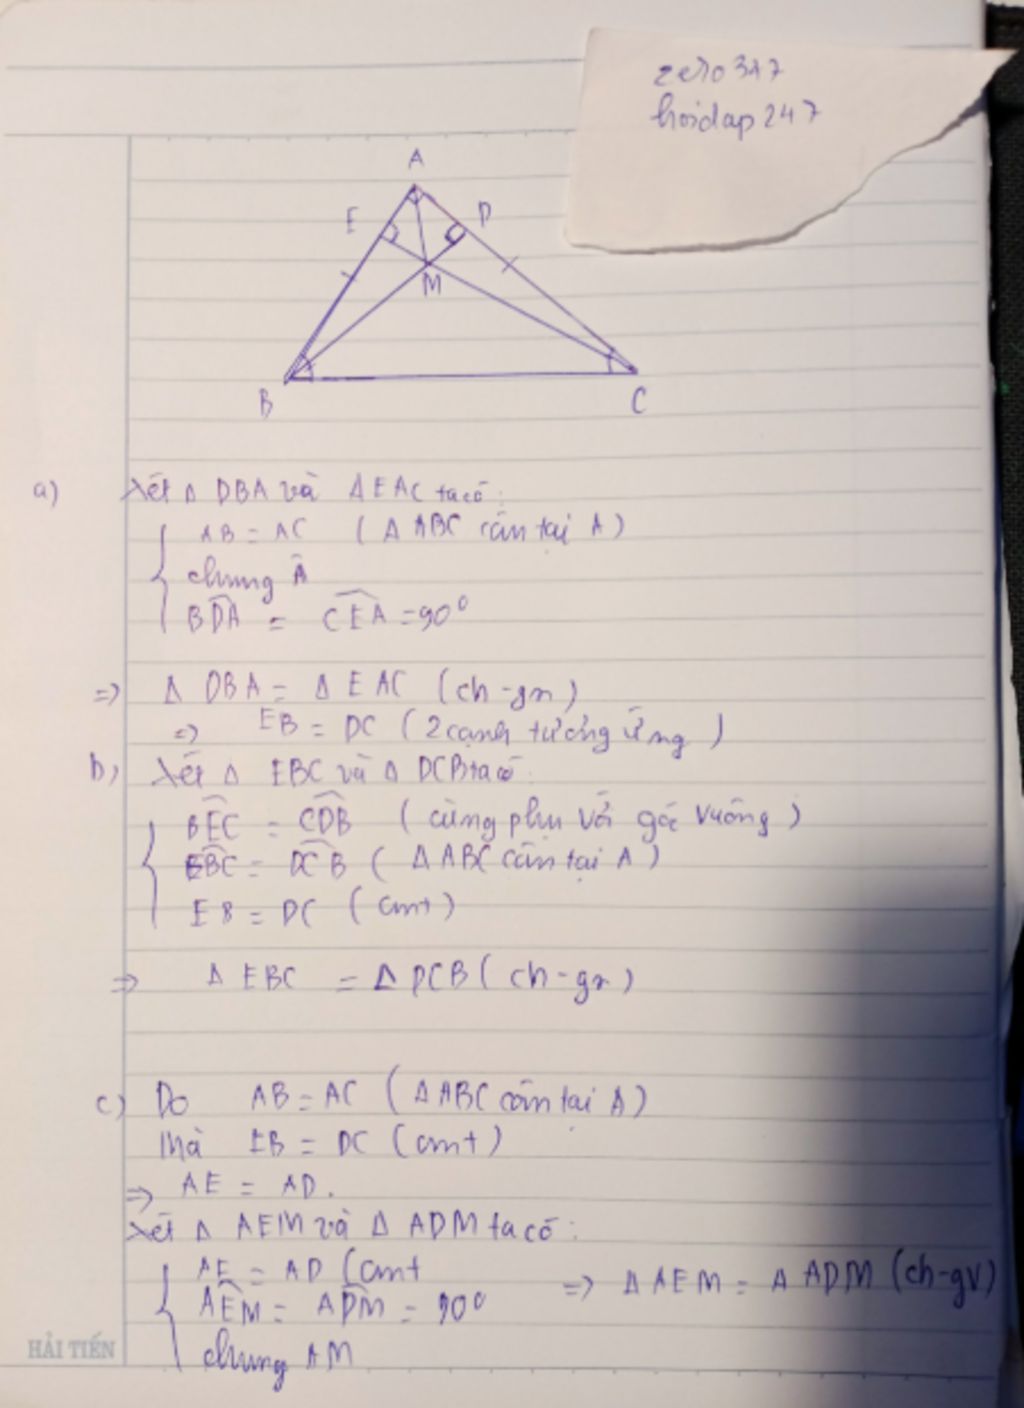 zero317
hoidap247
A
E
D
M
B
C
a) Xét Δ DBA và ΔEAC ta có:
AB = AC (ΔABC cân tại A)
chung Â
BDA = CEA = 90°
=> Δ DBA = Δ EAC (ch-gn)
=> EB = DC (2 cạnh tương ứng)
b) Xét Δ EBC và Δ DCB ta có:
BEC = CDB (cùng phụ với góc vuông)
EBC = DCB (ΔABC cân tại A)
EB = DC (cmt)
=> Δ EBC = Δ DCB (ch-gn)
c) Do AB = AC (ΔABC cân tại A)
Mà EB = DC (cmt)
=> AE = AD.
Xét Δ AEM và Δ ADM ta có:
AE = AD (cmt
AEM = ADM = 90° => Δ AEM = Δ ADM (ch-gv)
chung AM
HẢI TIẾN